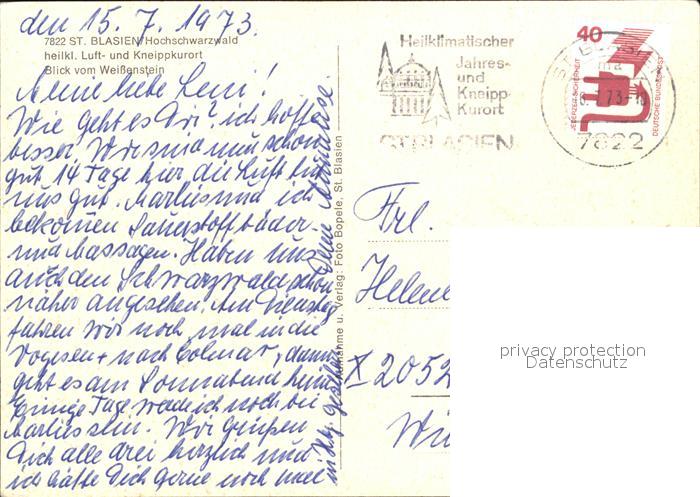 den 15. 7. 1973.
7822 ST. BLASIEN/Hochschwarzwald
heilkl. Luft- und Kneippkurort
Blick vom Weißenstein
Meine liebe Leni!
Wie geht es Dir? ich hoffe
besser. Wir sind nun schon
gut 14 Tage hier, die Luft tut
uns gut. Marlies und ich
bekomen Sauerstoffbäder
und Massagen. Haben uns
auch den Schwarzwald schon
näher angesehen. Am Dienstag
fahren wir noch mal in die
Vogesen + nach Colmar, dann
geht es am Sonnabend heim
Einige Tage werde ich noch bei
Marlies sein. Wir grüßen
Dich alle drei herzlich und
ich hätte Dich gerne noch mal
in Hbg. gesehen
Deine
Aufnahme u. Verlag: Foto Bopele, St. Blasien
Heilklimatischer
Jahres-
und
Kneipp-
Kurort
ST.BLASIEN
40
JEDERZEIT SICHERHEIT
DEUTSCHE BUNDESPOST
7822
Frl.
Helene
X 2052
privacy protection
Datenschutz